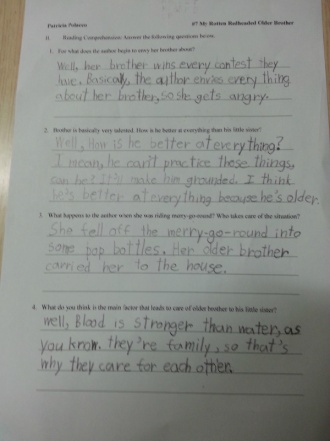 Patricia Polacco #7 My Rotten Redheaded Older Brother
II. Reading Comprehension: Answer the following questions below.
1. For what does the author begin to envy her brother about?
Well, her brother wins every contest they
have. Basically, the author envies every thing
about her brother, so she gets angry.
2. Brother is basically very talented. How is he better at everything than his little sister?
Well, How is he better at everything?
I mean, he can't practice these things,
can he? It'll make him grounded. I think
he's better at everything because he's older.
3. What happens to the author when she was riding merry-go-round? Who takes care of the situation?
She fell off the merry-go-round into
some pop bottles. Her older brother
carried her to the house.
4. What do you think is the main factor that leads to care of older brother to his little sister?
well, Blood is stronger than water, as
you know. they're family, so that's
why they care for each other.